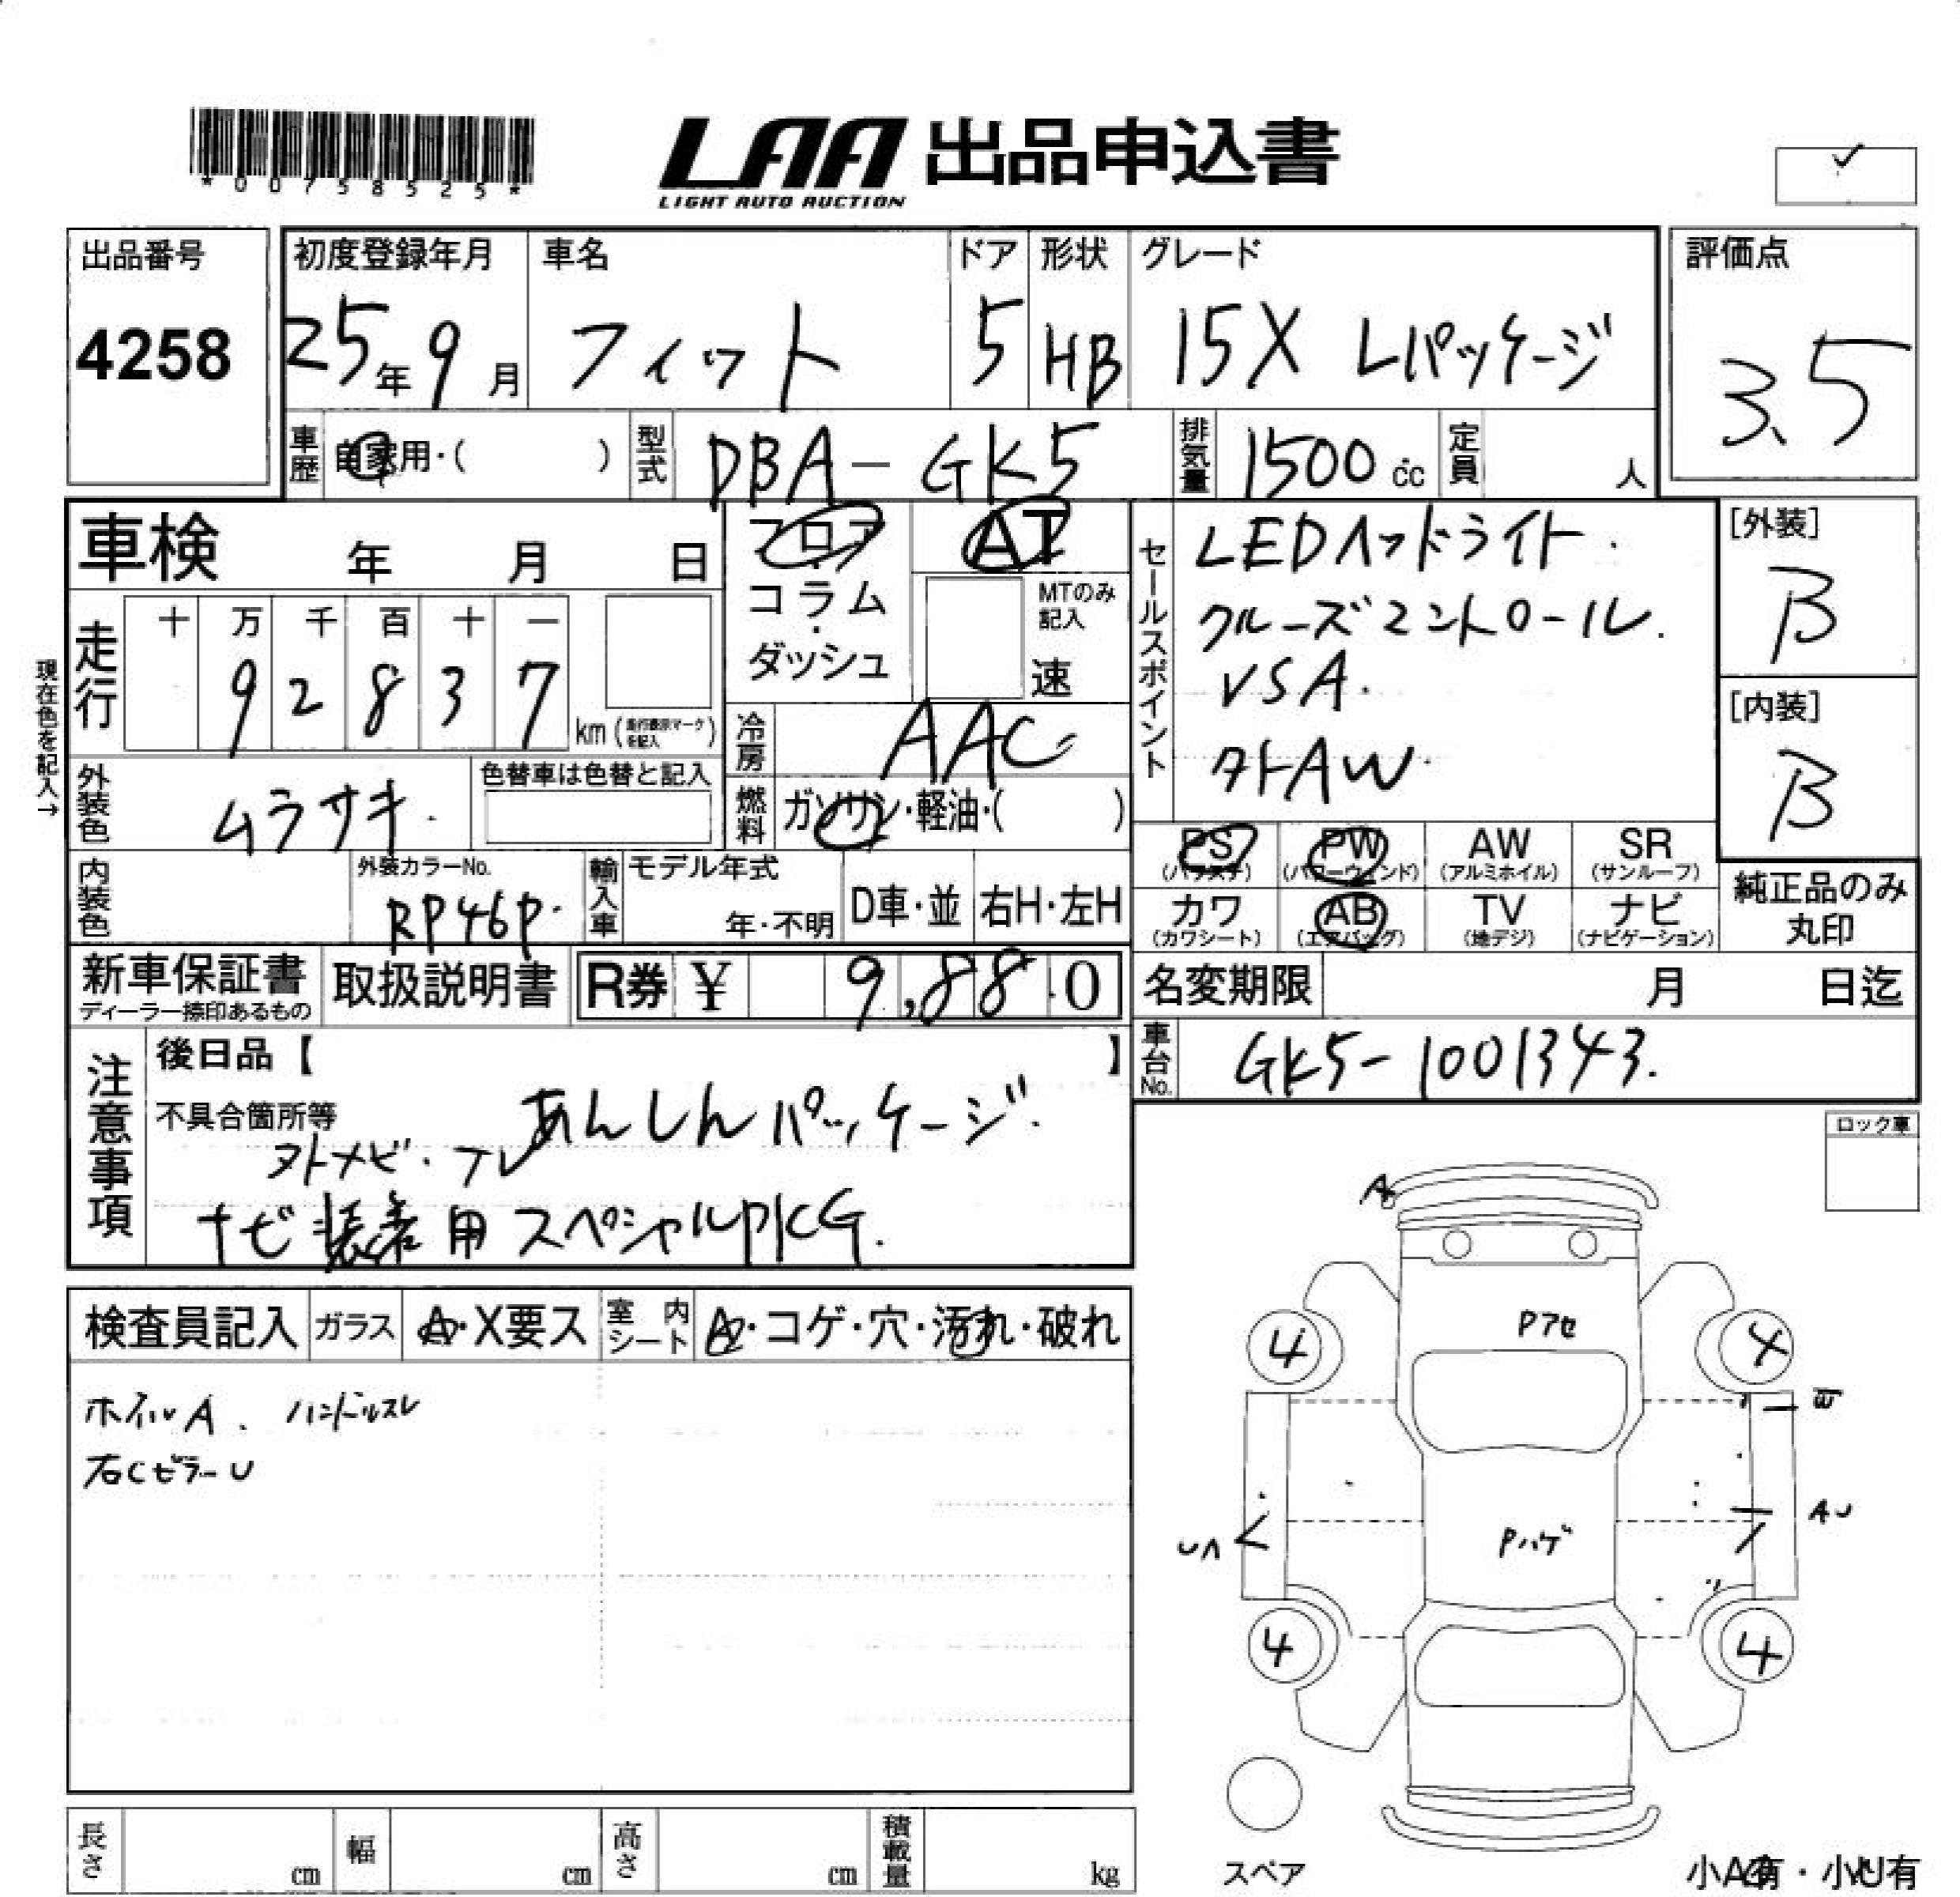 *00758525*
LAA 出品申込書
LIGHT AUTO AUCTION
✓
出品番号
4258
初度登録年月
25年9月
車名
フィット
ドア
5
形状
HB
グレード
15X Lパッケージ
評価点
3.5
車歴
自家用・( )
型式
DBA-GK5
排気量
1500 cc
定員
人
車検 年 月 日
フロア・コラム・ダッシュ
AT
MTのみ記入
速
セールスポイント
LEDヘッドライト.
クルーズコントロール.
VSA.
外AW.
[外装]
B
[内装]
B
現在色を記入→
走行
十 万 千 百 十 一
9 2 8 3 7
km
冷房
AAC
外装色
ムラサキ.
色替車は色替と記入
燃料
ガソリン・軽油・( )
PS (パワステ)
PW (パワーウィンド)
AW (アルミホイル)
SR (サンルーフ)
カワ (カワシート)
AB (エアバッグ)
TV (地デジ)
ナビ (ナビゲーション)
純正品のみ
丸印
内装色
外装カラーNo.
RP46P.
輸入車
モデル年式
年・不明
D車・並
右H・左H
新車保証書
ディーラー捺印あるもの
取扱説明書
R券 ¥ 9,880
名変期限 月 日迄
車台No.
GK5-1001343.
注意事項
後日品【 】
不具合箇所等
あんしんパッケージ.
外ナビ・TV
ナビ装着用スペシャルPKG.
ロック車
検査員記入
ガラス
A・X要ス
室内シート
A・コゲ・穴・汚れ・破れ
ホイルA. ハンドルスレ
右CピラーU
A
Pアセ
4
4
W
AU
Pハゲ
UA
4
4
スペア
小A有・小U有
長さ cm
幅 cm
高さ cm
積載量 kg